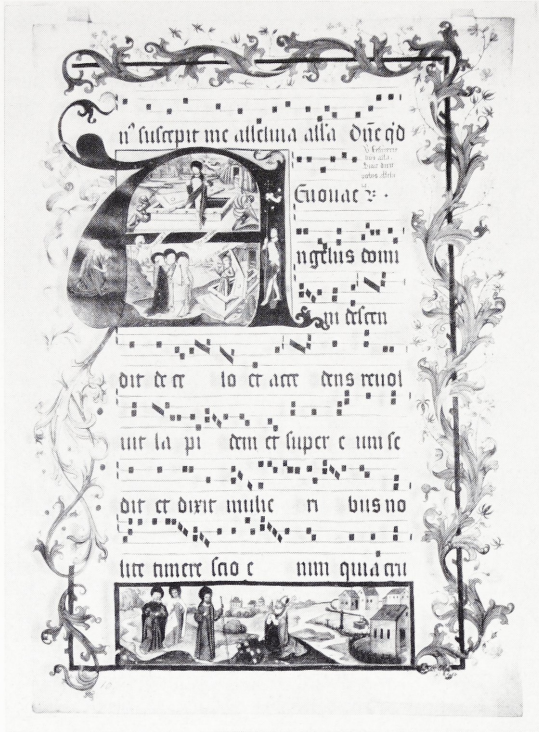 nꝰ suscepit me alleluia alla Dñe q̇d
Euouae
Angelus domi
ni descen
dit de ce lo et acce dens reuol
uit la pi dem et super e um se
dit et dixit mulie ri bus no
lite timere scio e nim quia cru